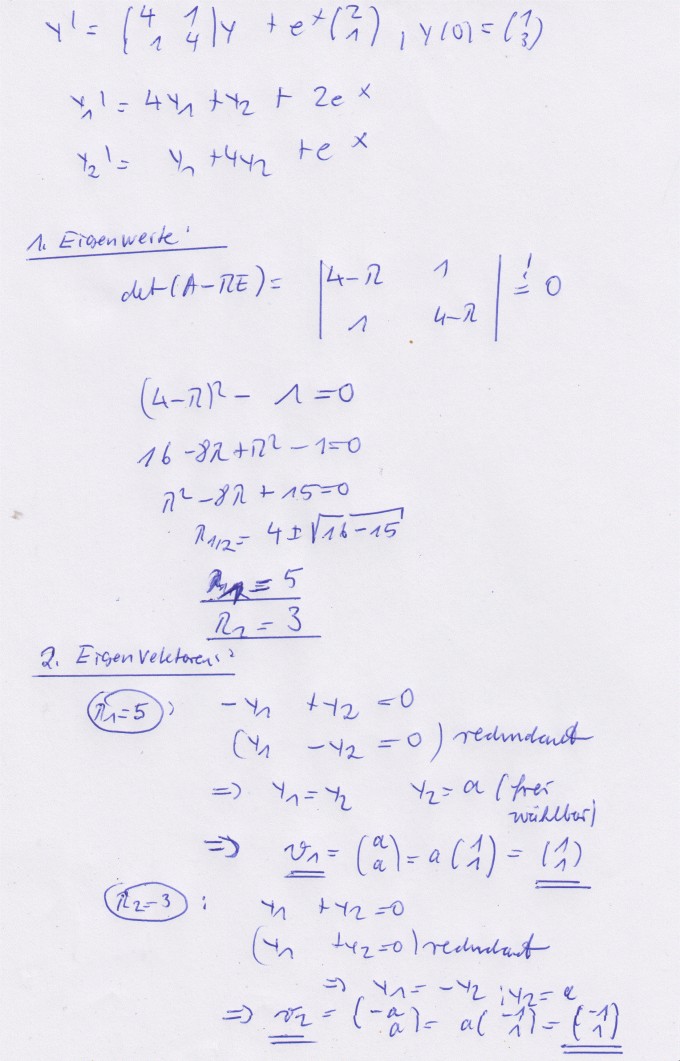 y' = (4 1 / 1 4) y + e^x (2 / 1) , y(0) = (1 / 3)
y₁' = 4y₁ + y₂ + 2e^x
y₂' = y₁ + 4y₂ + e^x
1. Eigenwerte:
det(A-λE) = |4-λ 1 / 1 4-λ| =! 0
(4-λ)² - 1 = 0
16 - 8λ + λ² - 1 = 0
λ² - 8λ + 15 = 0
λ₁/₂ = 4 ± √16-15
λ₁ = 5
λ₂ = 3
2. Eigenvektoren:
λ₁=5 : -y₁ + y₂ = 0
(y₁ - y₂ = 0) redundant
=> y₁ = y₂ y₂ = a (frei
wählbar)
=> v₁ = (a / a) = a (1 / 1) = (1 / 1)
λ₂=3 : y₁ + y₂ = 0
(y₁ + y₂ = 0) redundant
=> y₁ = -y₂ ; y₂ = a
=> v₂ = (-a / a) = a (-1 / 1) = (-1 / 1)